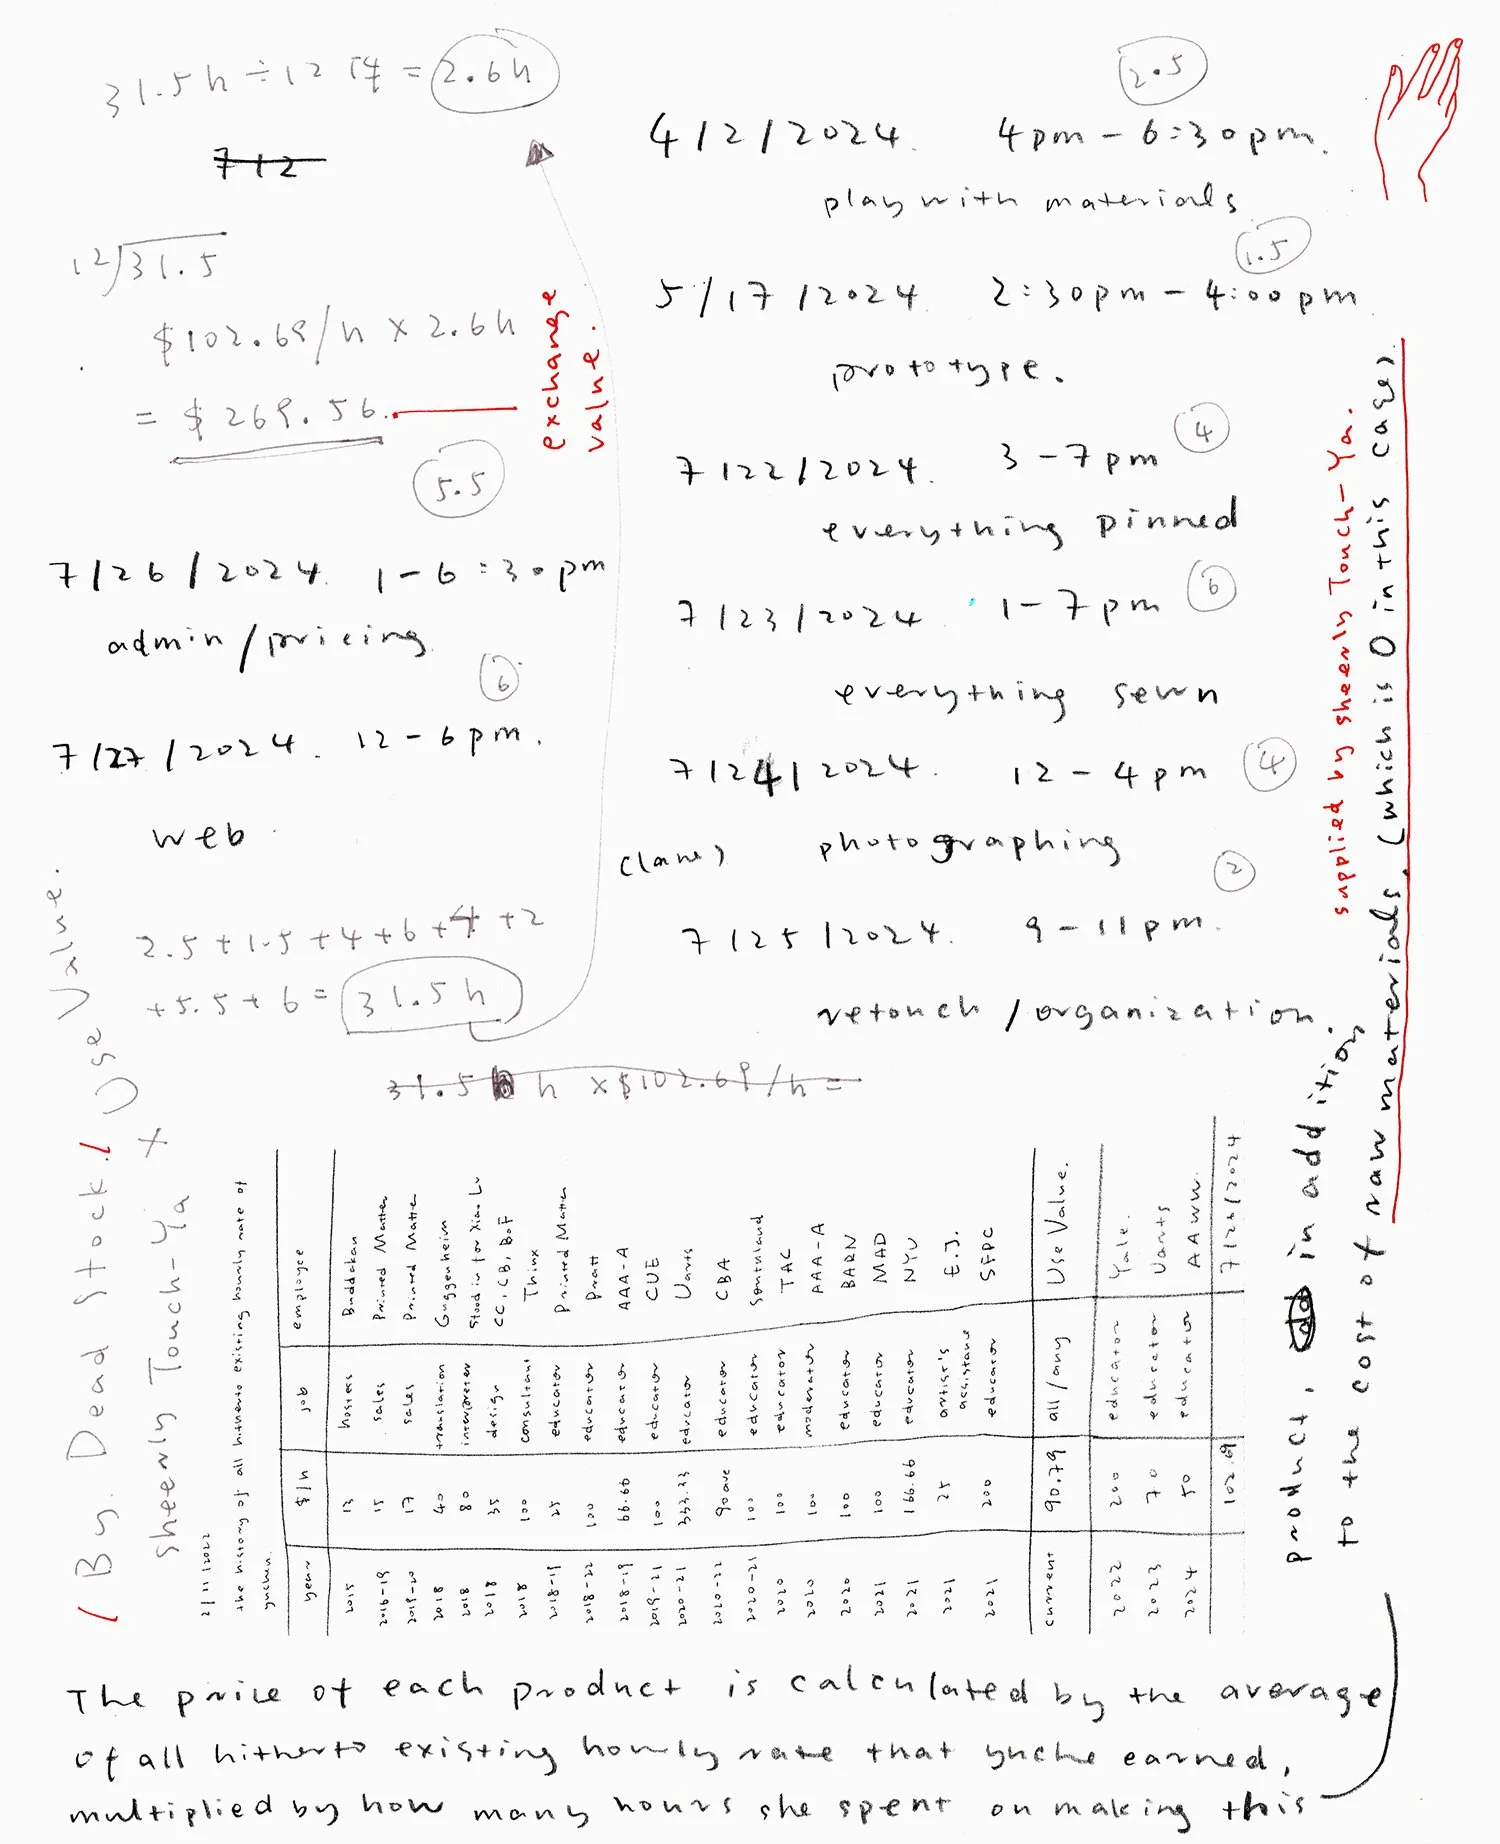 31.5h ÷ 12 件 = 2.6h
712
12 31.5
$102.69/h × 2.6h
= $269.56
exchange
value.
5.5
7/26/2024. 1-6:30pm
admin/pricing
6
7/27/2024. 12-6pm.
web
2.5+1.5+4+6+4+2
+5.5+6= 31.5h
31.5 h × $102.69/h =
2.5
4/2/2024. 4pm-6:30pm.
play with materials
1.5
5/17/2024. 2:30pm-4:00pm
prototype.
4
7/22/2024. 3-7pm
everything pinned
6
7/23/2024 1-7pm
everything sewn
4
7/24/2024. 12-4pm
photographing
2
7/25/2024. 9-11pm.
retouch/organization
By. Dead Stock. / Use Value.
Sheerly Touch-Ya ×
2/11/2022
the history of all hitherto existing hourly rate of
yuchen.
year $/h job employee
2015 13 hostess Buddakan
2016-19 15 sales Printed Matter
2019-20 17 sales Printed Matter
2018 40 translation Guggenheim
2018 80 interpreter Stood in for Xiao Lu
2018 35 design CC, CB, BoF
2018 100 consultant Thinx
2018-19 25 educator Printed Matter
2018-22 100 educator Pratt
2018-19 66.66 educator AAA-A
2019-21 100 educator CUE
2020-21 333.33 educator Uarts
2020-22 90 ave educator CBA
2020-21 100 educator
2020 100 educator TAC
2020 100 moderator AAA-A
2020 100 educator BARN
2021 100 educator MAD
2021 166.66 educator NYU
2021 25 artist's assistant E.J.
2021 200 educator SFPC
current 90.79 all/any Use Value.
2022 200 educator Yale.
2023 70 educator Uarts
2024 50 educator AAWW.
102.69 7/26/2024
The price of each product is calculated by the average
of all hitherto existing hourly rate that yuche earned,
multiplied by how many hours she spent on making this
product, in addition,
to the cost of raw materials. (which is 0 in this case)
supplied by sheerly Touch-Ya.